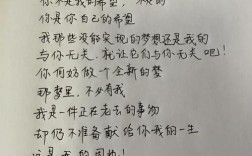 你不是我的希望，不是的
你是你自己的希望
我那些没能实现的梦想还是我的
与你无关，就让它们与你无关吧！
你何妨做一个全新的梦
那梦里，不必有我
我是一件正在老去的事物
却仍不准备献给你我的一生
这是我的固执！